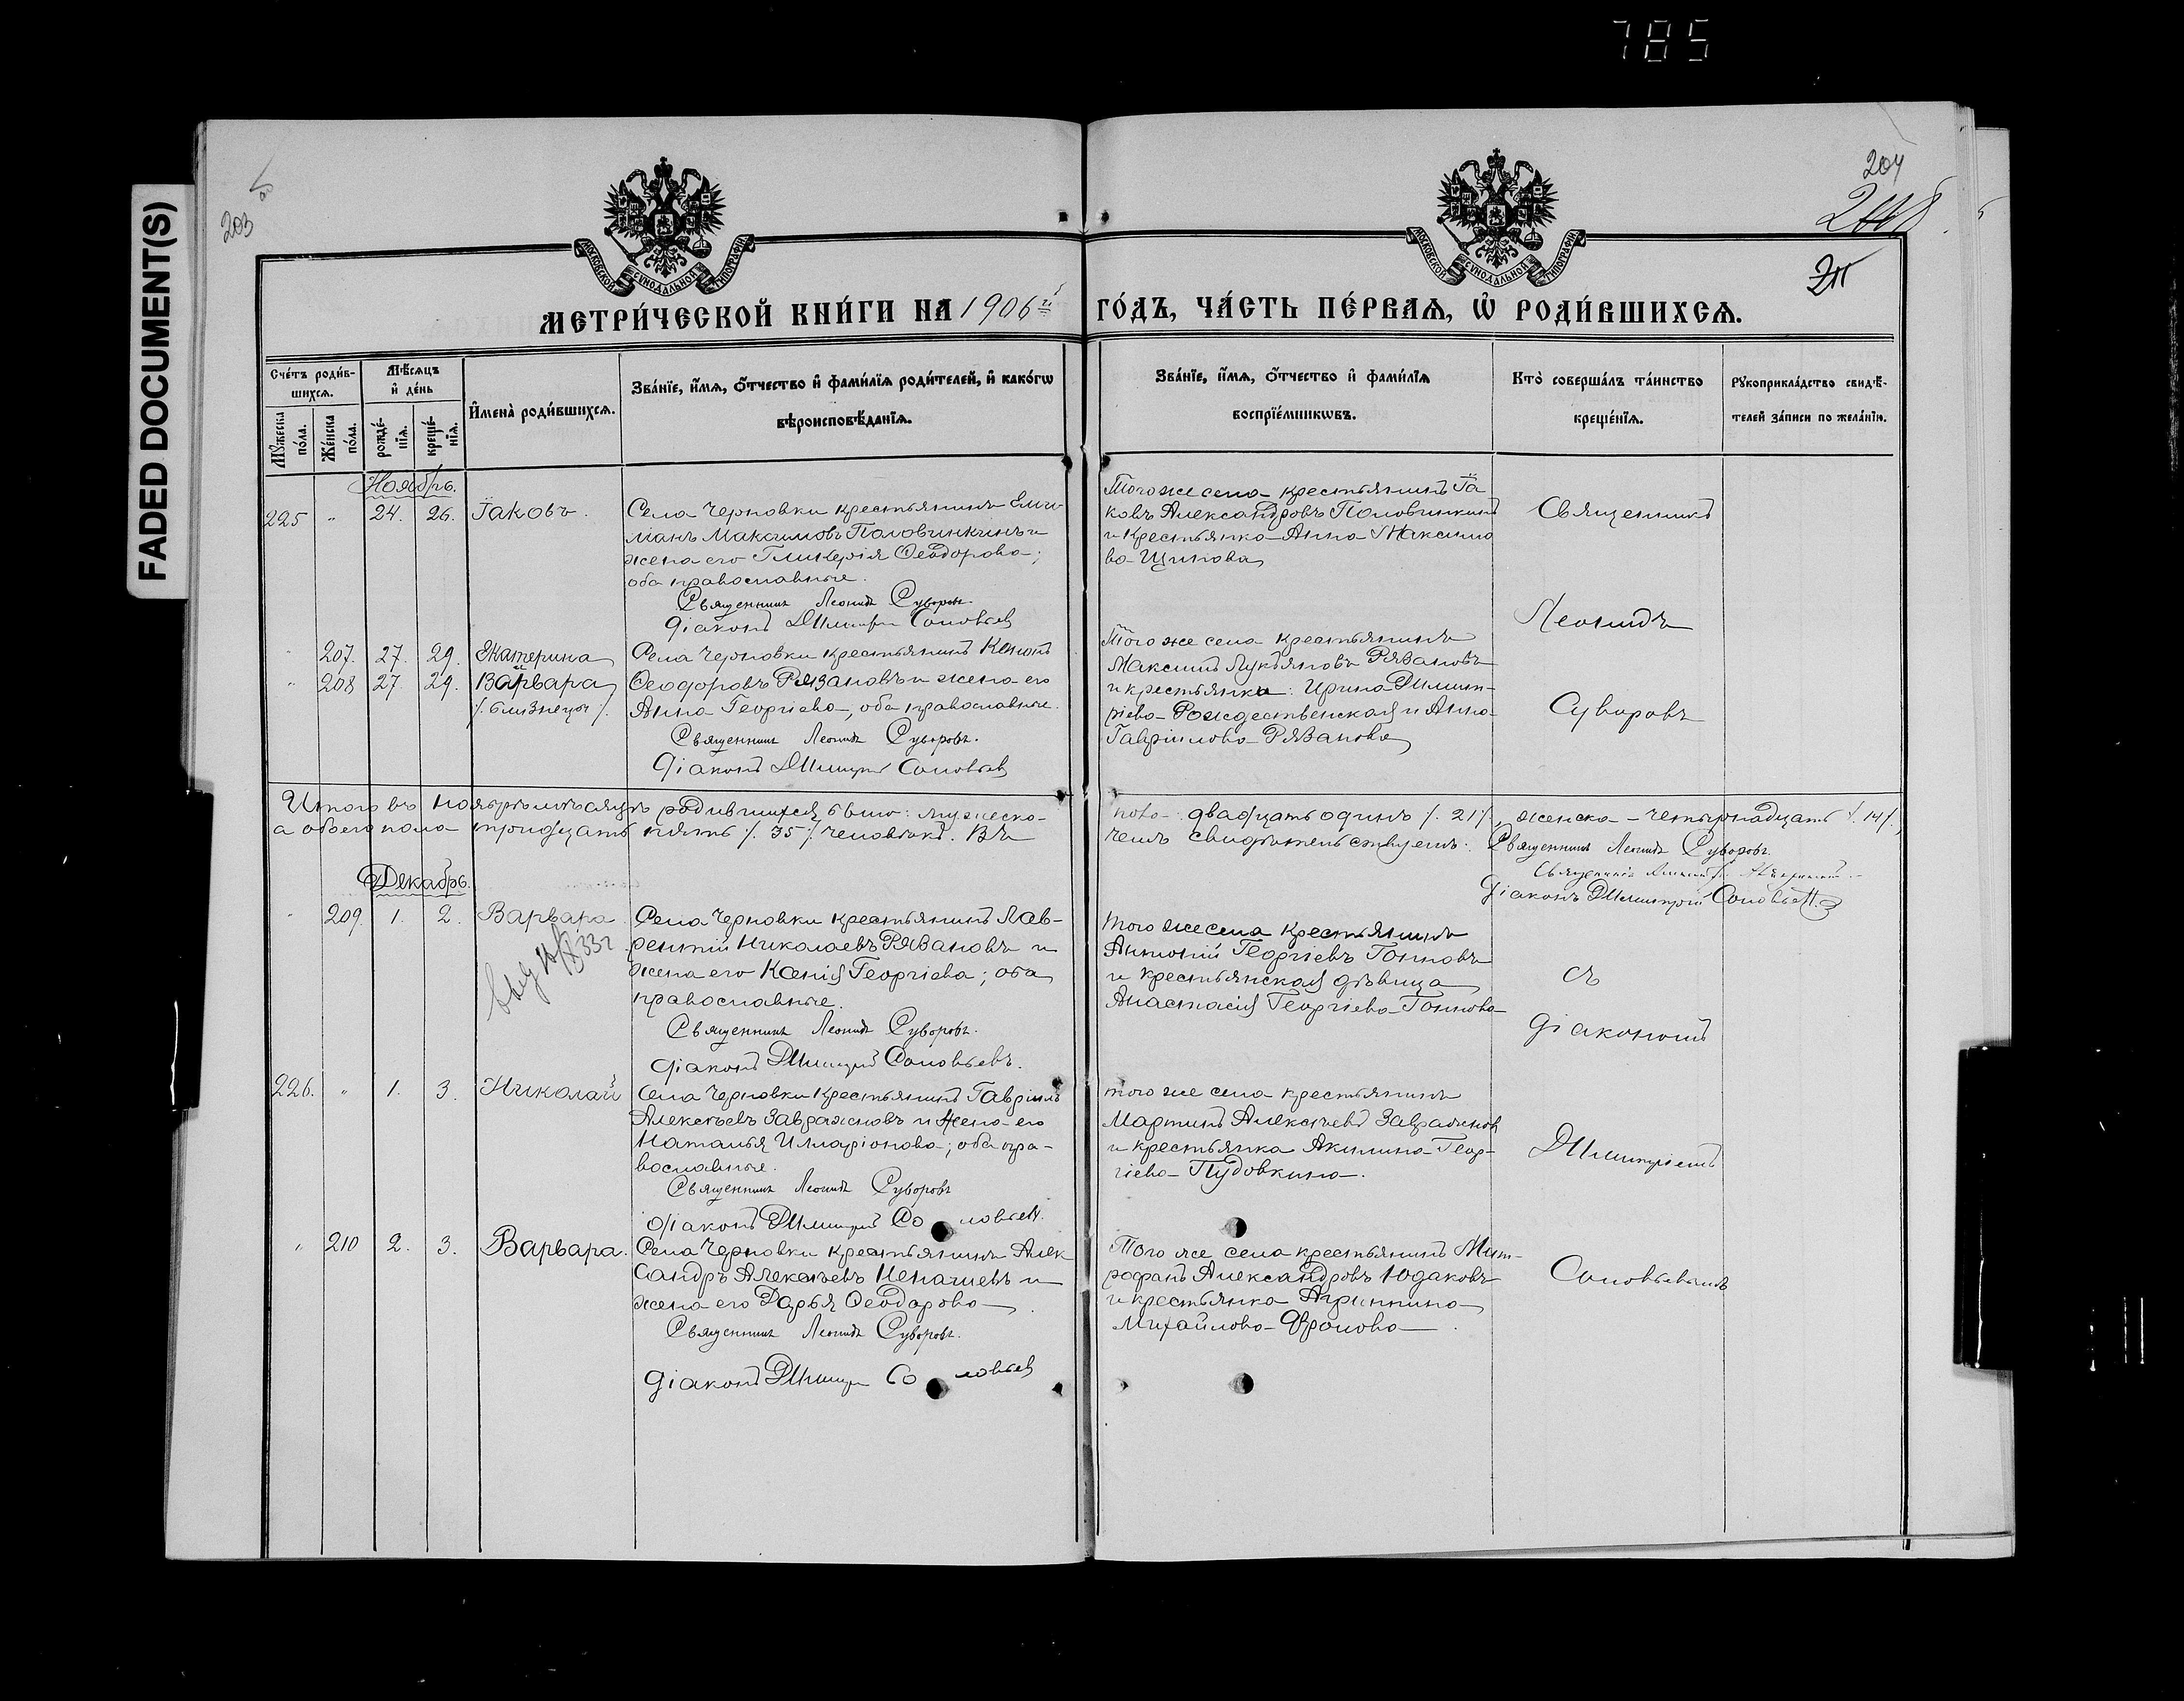 785
FADED DOCUMENT(S)
203
204
МОСКОВСКОЙ СѴНОДАЛЬНОЙ ТИПОГРАФІИ
МОСКОВСКОЙ СѴНОДАЛЬНОЙ ТИПОГРАФІИ
МЕТРИ́ЧЕСКОЙ КНИ́ГИ НА 1906й
ГО́ДЪ, ЧА́СТЬ ПЕ́РВАѦ, Ѡ҆ РОДИ́ВШИХСѦ.
Сче́тъ роди́в-
шихсѧ.
Мꙋ́жеска по́ла.
Же́нска по́ла.
Мѣ́сѧцъ
и҆ де́нь
рожде́-
нїѧ.
креще́-
нїѧ.
И҆мена̀ роди́вшихсѧ.
Зва́нїе, и҆́мѧ, ѻ҆́тчество и҆ фами́лїѧ роди́телей, и҆ како́гѡ
вѣроисповѣ́данїѧ.
Зва́нїе, и҆́мѧ, ѻ҆́тчество и҆ фами́лїѧ
воспрїе́мникѡвъ.
Кто̀ соверша́лъ та́инство
креще́нїѧ.
Рꙋкоприкла́дство свидѣ́-
телей за́писи по жела́нїю.
Ноябрь.
225 " 24. 26. Іаковъ.
Села Черновки крестьянинъ Емил-
ианъ Максимовъ Половинкинъ и
жена его Гликерія Ѳеодорова;
оба православные.
Священникъ Леонидъ Суворовъ
Діаконъ Димитрій Соловьев
Того же села крестьянинъ Іа
ковъ Александровъ Половинкинъ
и крестьянка Анна Максимо
ва Щипова
Священникъ
Леонидъ
Суворовъ
съ
діакономъ
Димитріемъ
Соловьевымъ
" 207. 27. 29. Екатерина
" 208 27 29. Варвара
/. близнецы /.
Села Черновки крестьянинъ Конон
Ѳеодоровъ Рязановъ и жена его
Анна Георгіева, оба православные.
Священникъ Леонидъ Суворовъ.
Діаконъ Димитрій Соловьев
Того же села крестьянинъ
Максимъ Лукьяновъ Рязановъ
и крестьянки: Ирина Димит-
ріева Рождественская и Анна
Гавріилова Рязанова
Итого въ ноябрѣ мѣсяцѣ родившихся было: мужеска
пола двадцать одинъ /. 21 /., женска – четырнадцать /. 14 /.,
а обоего пола тридцать пять /. 35 /. человѣкъ. Въ
чемъ свидѣтельствуемъ: Священникъ Леонидъ Суворовъ.
Діаконъ Димитрій Соловьев
Декабрь.
" 209. 1. 2. Варвара
Села Черновки крестьянинъ Лав-
рентій Николаевъ Рязановъ и
жена его Ксенія Георгіева; оба
православные.
Священникъ Леонидъ Суворовъ.
діаконъ Димитрій Соловьевъ.
того же села крестьянинъ
Антоній Георгіевъ
и крестьянская дѣвица
Анастасія Георгіева
226. " 1. 3. Николай
Села Черновки крестьянинъ Гавріилъ
Алексѣевъ Завражновъ и жена его
Наталья Иларіонова; оба пра-
вославные.
Священникъ Леонидъ Суворовъ
діаконъ Димитрій Соловьев.
того же села крестьянинъ
Мартинъ Алексѣевъ Завражнов
и крестьянка Акилина Геор-
гіева Пудовкина.
" 210 2. 3. Варвара.
Села Черновки крестьянинъ Алек
сандръ Алексѣевъ Ненашевъ и
жена его Дарья Ѳеодорова
Священникъ Леонидъ Суворовъ.
діаконъ Димитрій Соловьев
Того же села крестьянинъ Мит-
рофанъ Александровъ Юдаковъ
и крестьянка Агриппина
Михайлова Фролова.